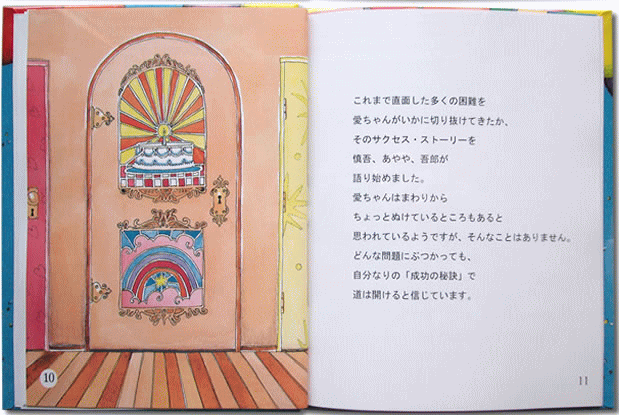 10
これまで直面した多くの困難を
愛ちゃんがいかに切り抜けてきたか、
そのサクセス・ストーリーを
慎吾、あやや、吾郎が
語り始めました。
愛ちゃんはまわりから
ちょっとぬけているところもあると
思われているようですが、そんなことはありません。
どんな問題にぶつかっても、
自分なりの「成功の秘訣」で
道は開けると信じています。
11